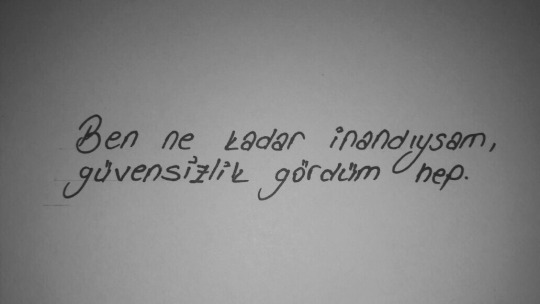 Ben ne kadar inandıysam,
güvensizlik gördüm hep.